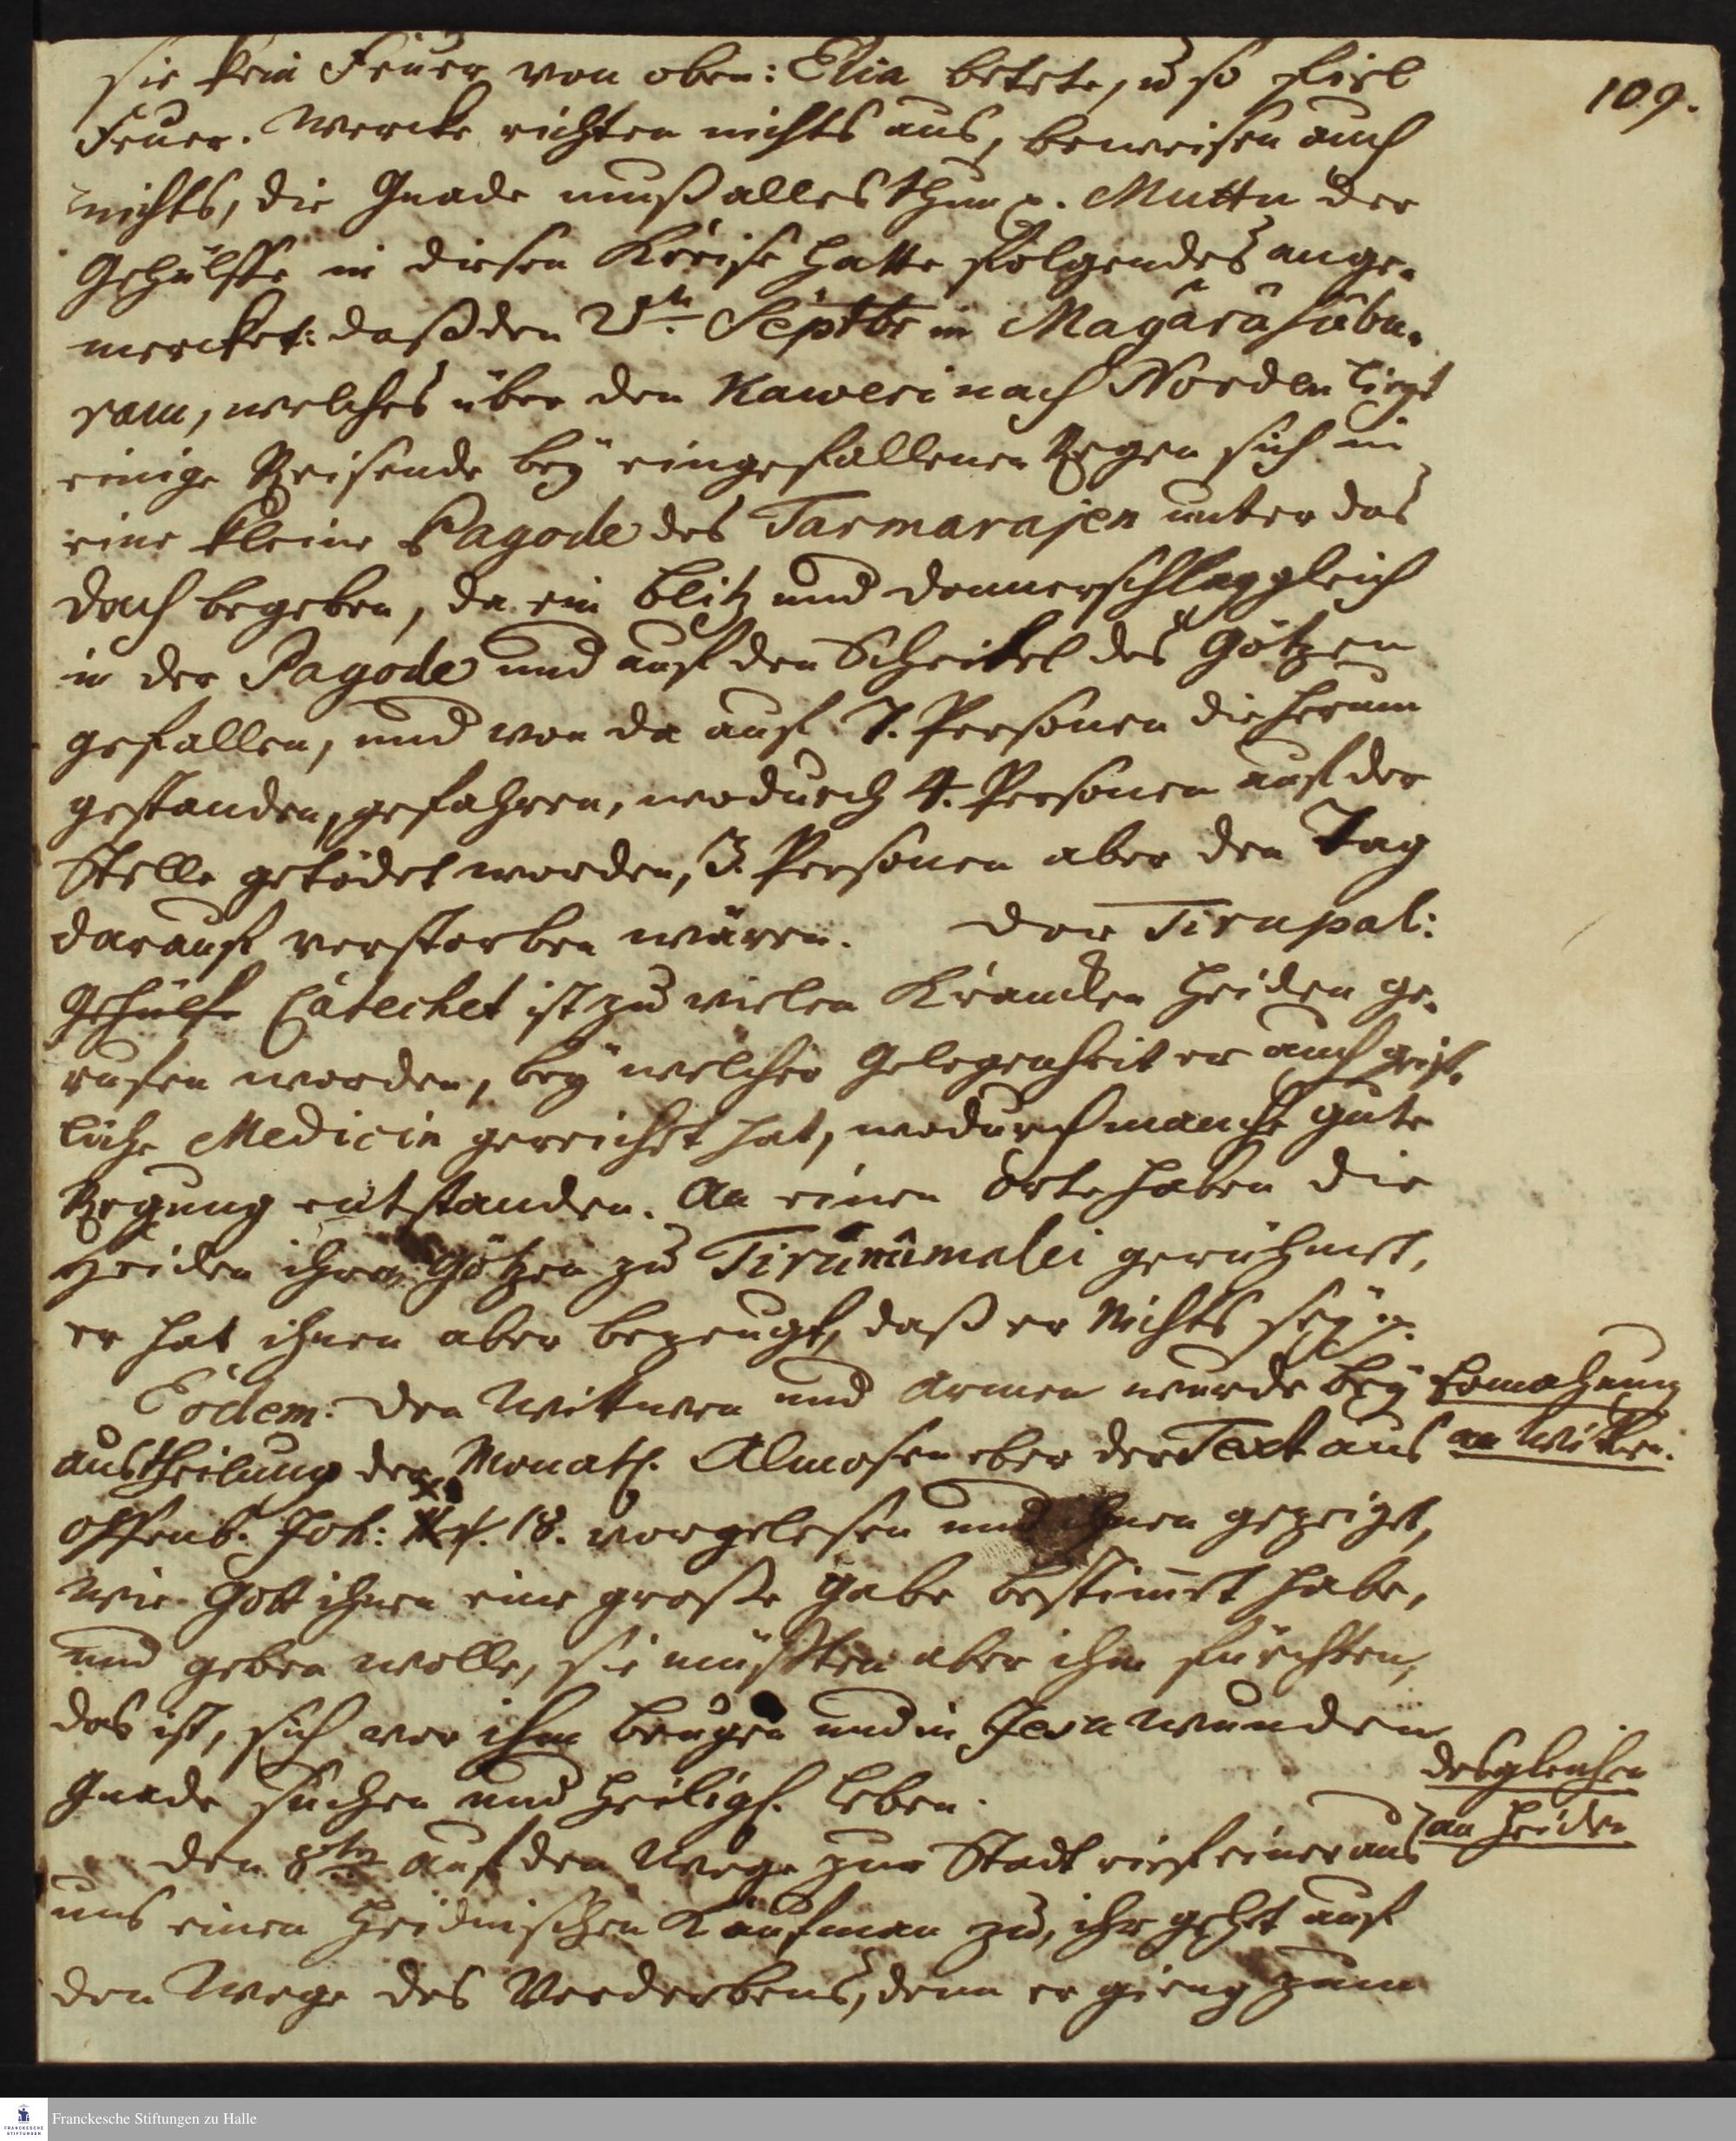 109.
sie kein Feuer von oben: Elia betete, u so fiel
Feuer. Wercke richten nichts aus, beweisen auch
nichts, die Gnade muß alles thun p. Muttu der
Gehülffe in diesen Kreise hatte folgendes ange-
mercket: daß den 2ten Septbr in Magarasäbu-
ram, welches über den Kaweri nach Norden liegt
einige Reisende bey eingefallenen Regen sich in
eine kleine Pagode des Tarmarajen unter das
Dach begeben, da ein Blitz und Donnerschlag gleich
in der Pagode und auf den Scheitel des Götzen
gefallen, und von da auf 7. Personen die herum
gestanden, gefahren, wodurch 4. Personen auf der
Stelle getödet worden, 3. Personen aber den Tag
darauf verstorben wären. Der Tirupal:
Gehülfe Catechet ist zu vielen Krancken Heiden ge-
rufen worden, bey welcher Gelegenheit er auch geist-
liche Medicin gereichet hat, wodurch manche gute
Regung entstanden. An einen Orte haben die
Heiden ihren Götzen zu Tirunamalei gerühmet,
er hat ihnen aber bezeugt, daß er Nichts sey p.
Eodem. Den Wittwen und Armen wurde bey
Austheilung der Monatl. Almosen eben der Text aus
Offenb. Joh: 18. vorgelesen und ihnen gezeiget,
wie Gott ihnen eine große Gabe bestimet habe,
und geben wolle, sie müßten aber ihn fürchten,
das ist, sich vor ihm beugen und in Jesu Wunden
Gnade suchen und heiligl. leben.
Den 8ten Auf den Wege zur Stadt rief einer aus
uns einen Heidnischen Kaufman zu, ihr gehet auf
den Wege des Verderbens, denn er gieng zum
Ermahnung
an Wittwen.
desgleichen
an Heiden
Franckesche Stiftungen zu Halle